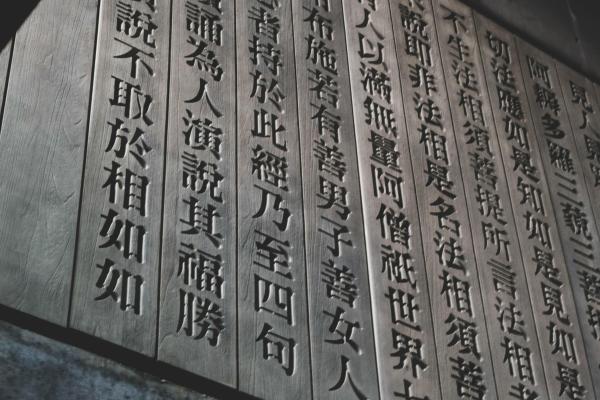 見人見
阿耨多羅三藐三菩
切法應如是知如是見如是
不生法相須菩提所言法相者
說即非法相是名法相須菩
人以滿無量阿僧祇世界七
布施若有善男子善女人
者持於此經乃至四句
誦為人演說其福勝
說不取於相如如